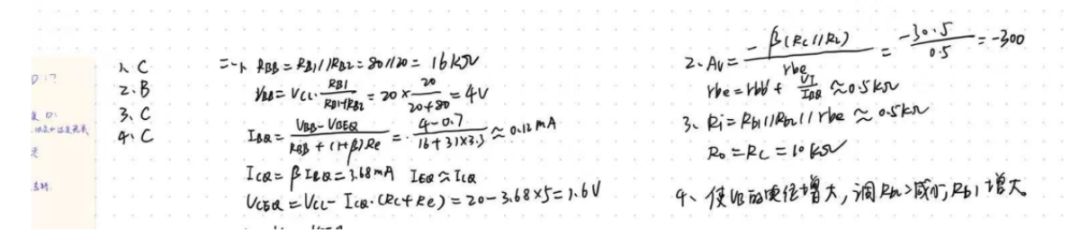 1. C
2. B
3. C
4. C
二、1. RBB = RB1//RB2 = 80//20 = 16kΩ
VBB = VCC·RB1/(RB1+RB2) = 20×20/(20+80) = 4V
IBQ = (VBB-VBEQ)/(RBB+(1+β)Re) = (4-0.7)/(16+31×3.3) ≈ 0.12mA
ICQ = βIBQ = 3.68mA IEQ ≈ ICQ
VCEQ = VCC - ICQ·(RC+Re) = 20-3.68×5 = 1.6V
2、Av = -β(RC//RL)/rbe = -30·5/0.5 = -300
rbe = rbb' + VT/IBQ ≈ 0.5kΩ
3、Ri = Rb1//Rb2//rbe ≈ 0.5kΩ
Ro = RC = 10kΩ
4、使VB的电位增大,调Rb2减小,Rb1增大